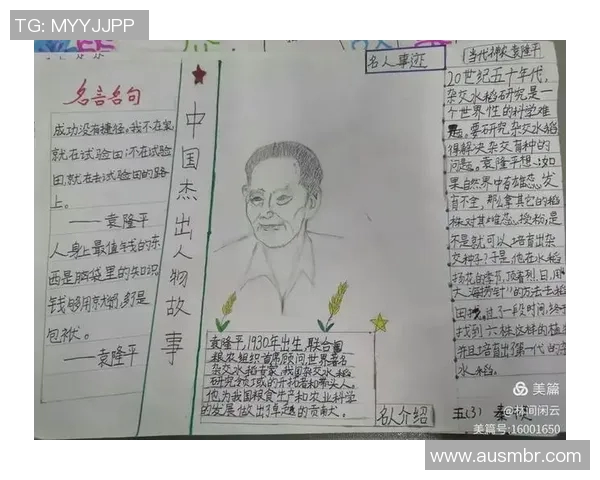 TG: MYYJJPP
名言名句
成功没有捷径。我不在家,
就在试验田;不在试验
田,就在去试验田的路
上。
——袁隆平
人身上最值钱的东
西是脑袋里的知识,
钱够用就
包袱。
——袁隆平
中国杰出人物故事
袁隆平,1930年出生,联合国
粮农组织首席顾问,世界著名
杂交水稻专家,我国杂交水稻
研究领域的开拓者和带头人。
他为我国粮食生产和农业科学
的发展做出了卓越的贡献大。
名人介绍
名人事迹
当代神农袁隆平
20世纪五十年代,
杂交水稻研究是一
个世界性的科学难
题。要研究杂交水稻
得解决杂交育种的
问题。袁隆平想:如
果自然界中有雄蕊发
育不全,那么拿其它的稻
株对其雌蕊授粉,是
不是就可以培育出杂
交种子?于是,他在水稻
扬花的季节,顶着烈日,用
大海捞针"的方法去稻
田找。一段时间,终于
找到六株这样的植
并且培育出了第一代的杂
水稻。
五(3) 秦
美篇
@林间闲云
美篇号:16001650
www.ausmbr.com